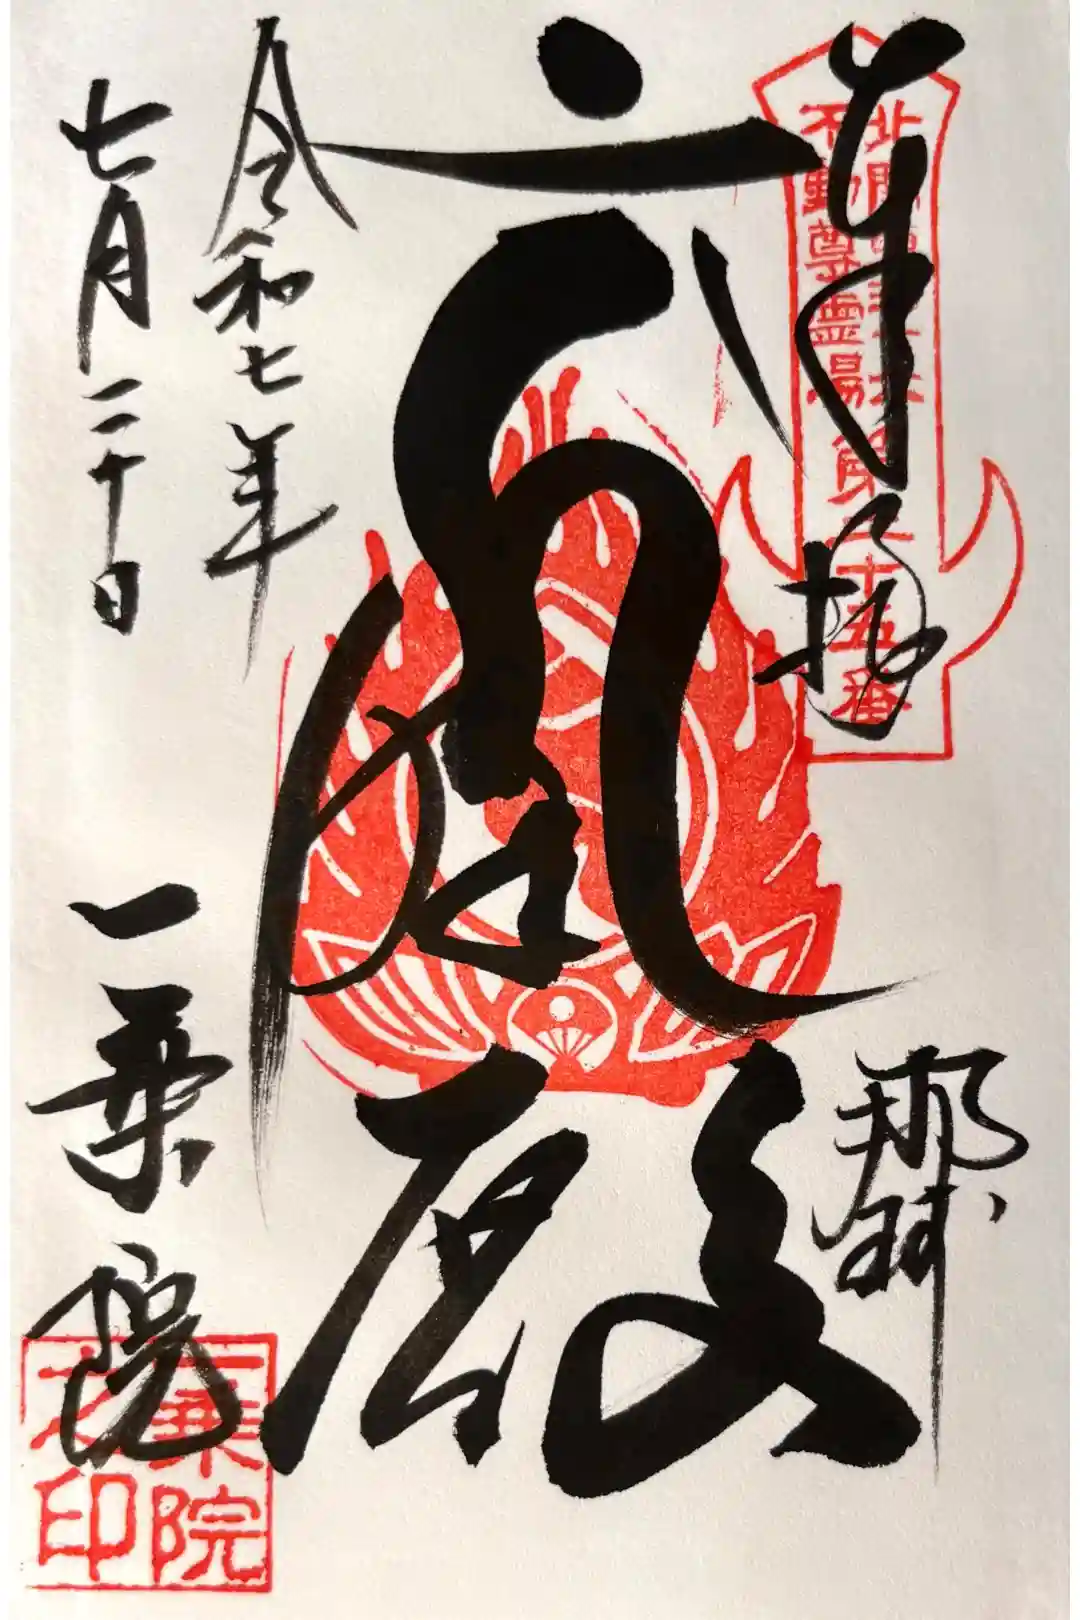 奉拝
北関東三十六
不動尊霊場
第二十五番
那珂
殿
令和七年
七月二十日
一乗院
一乗院
之印